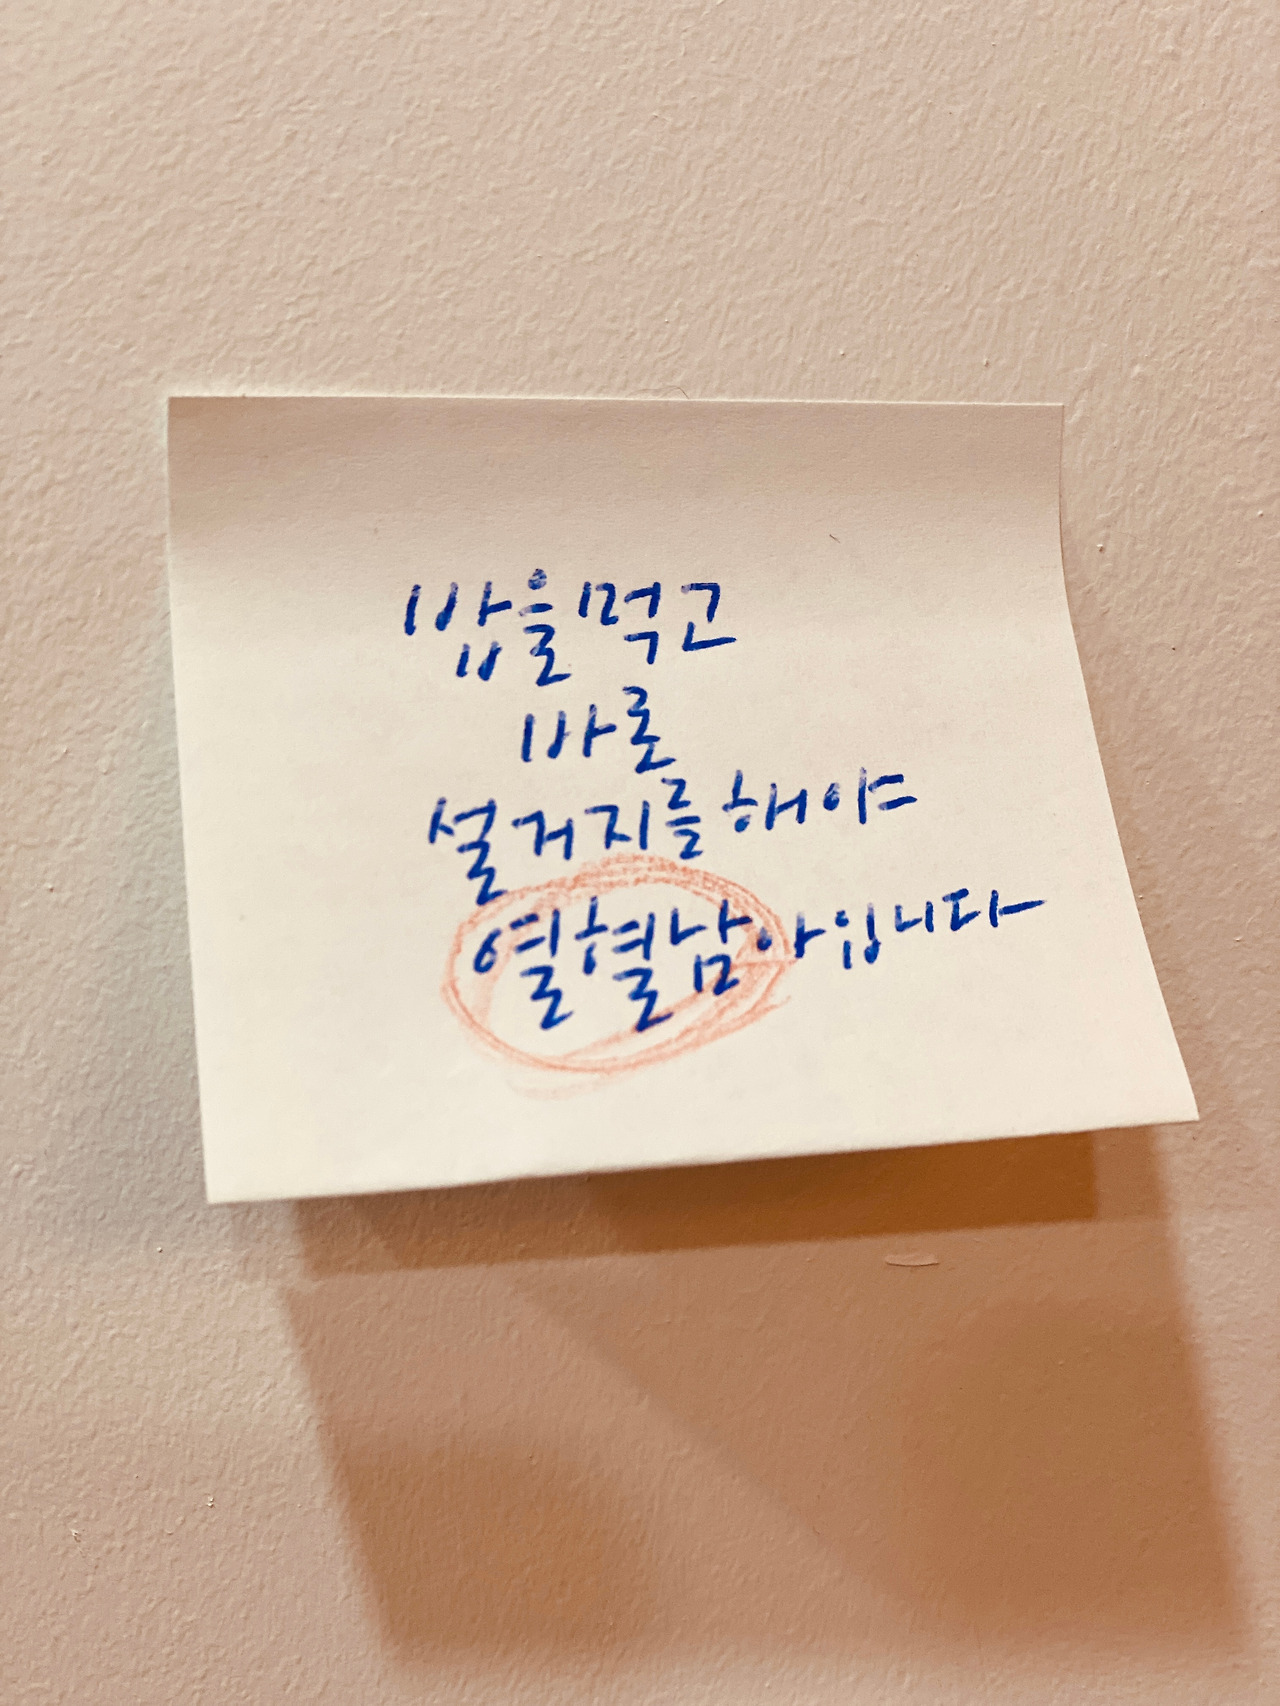 밥을먹고
바로
설거지를해야
열혈남아입니다